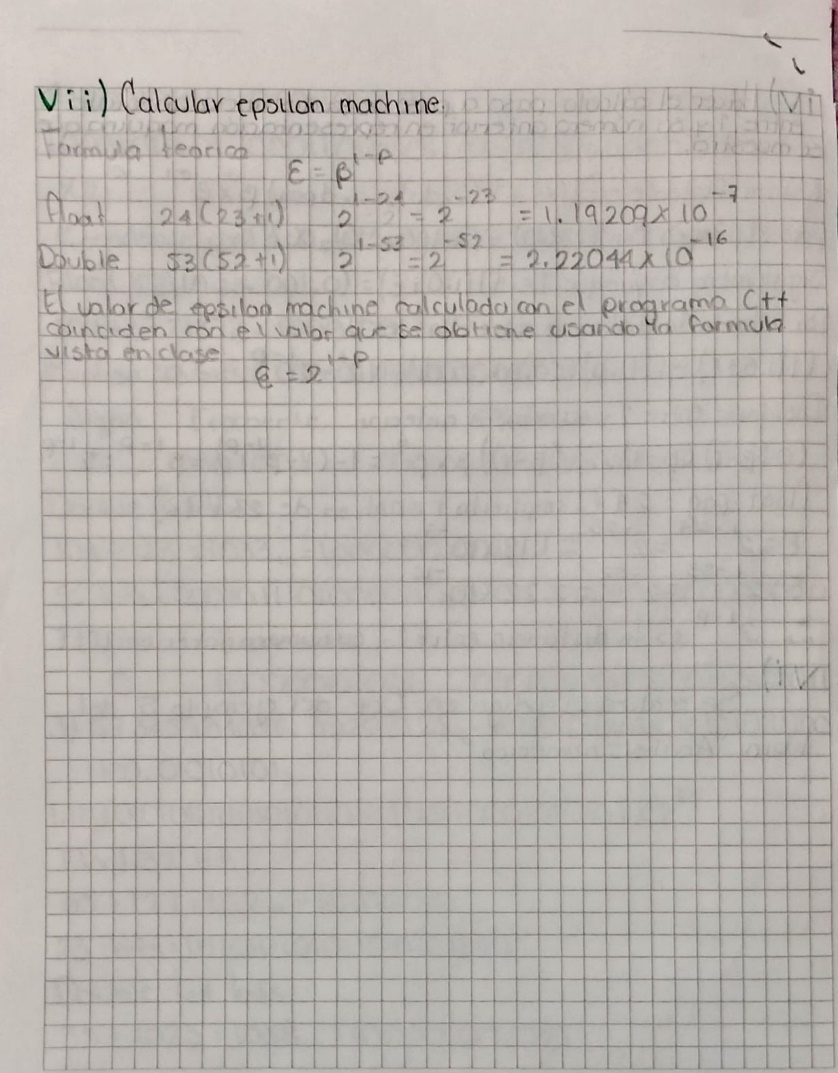 Vii) Calcular epsilon machine.
Formula teorica
ε = β^1-p
float 24(23+1) 2^1-24 = 2^-23 = 1.19209x10^-7
Double 53(52+1) 2^1-53 = 2^-52 = 2.22044x10^-16
El valor de epsilon machine calculado con el programa C++
coinciden con el valor que se obtiene usando la formula
vista en clase
ε = 2^1-p